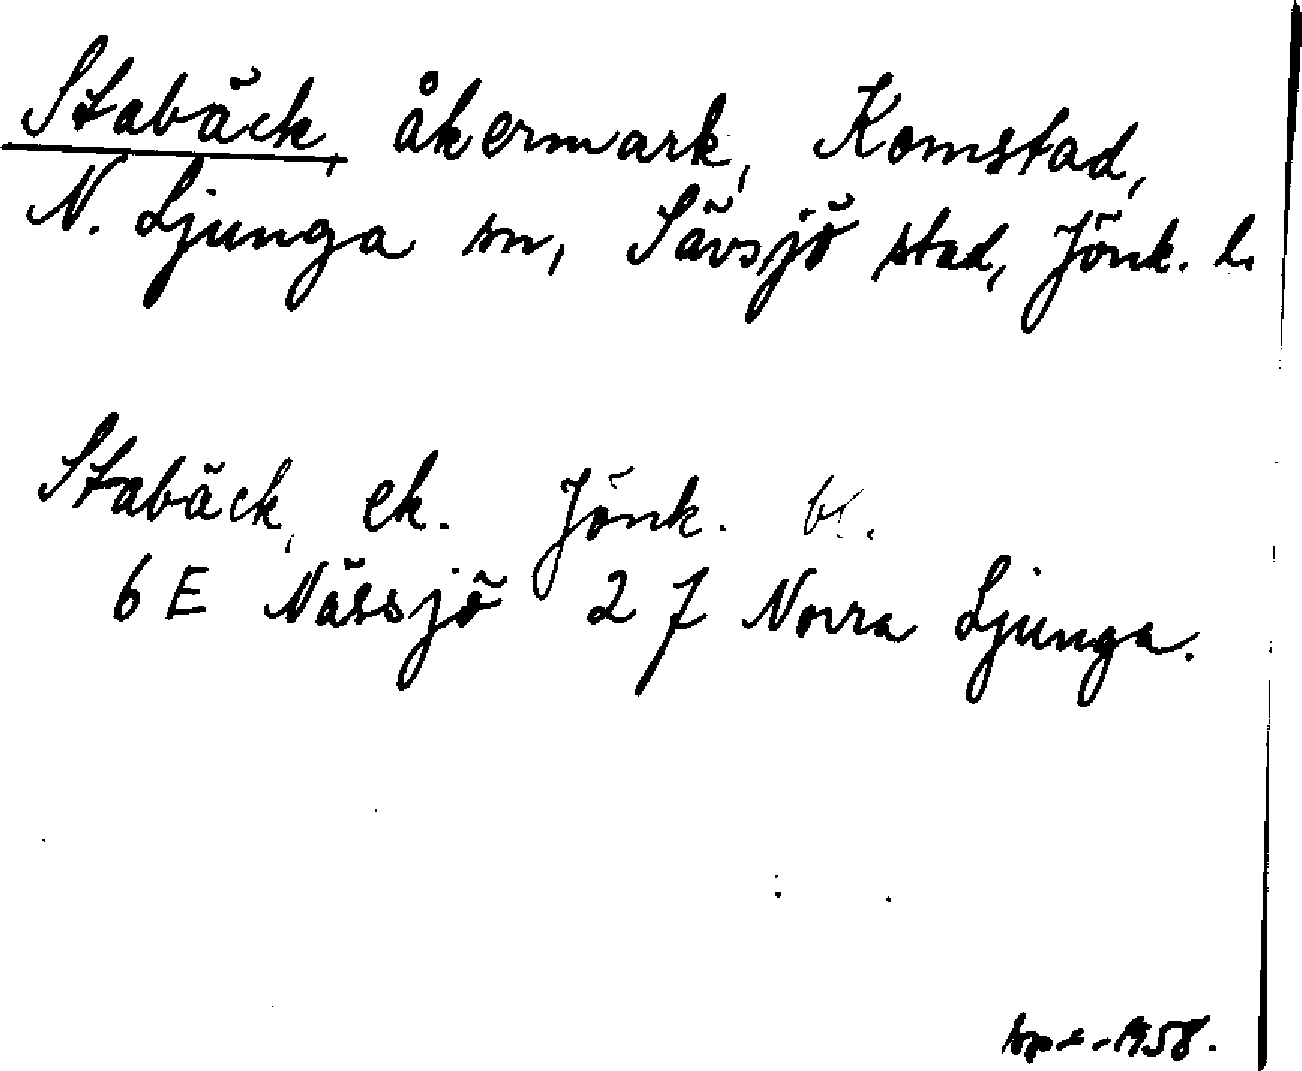 Stabäck, åkermark, Komstad,
N. Ljunga sn, Sävsjö stad, Jönk. l.
Stabäck, ek. Jönk. bl.
6 E Nässjö 2 f Norra Ljunga.
1958.